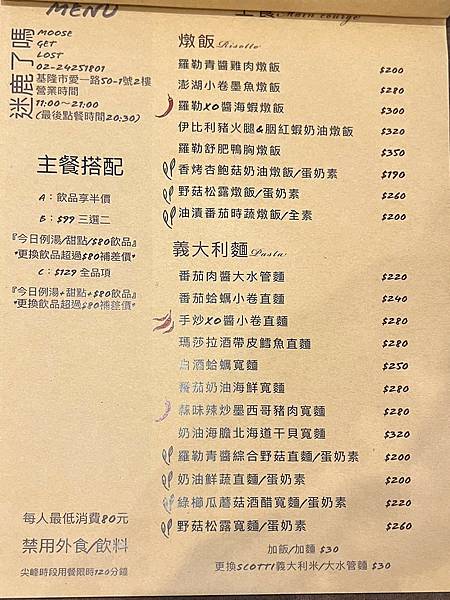 MENU
迷鹿了嗎
MOOSE
GET
LOST
02-24251801
基隆市愛一路50-1號2樓
營業時間
11:00~21:00
(最後點餐時間20:30)
主餐搭配
A：飲品享半價
B：$99 三選二
『今日例湯/甜點/$80飲品』
*更換飲品超過$80補差價*
C：$129 全品項
『今日例湯+甜點+$80飲品』
*更換飲品超過$80補差價*
每人最低消費80元
禁用外食/飲料
尖峰時段用餐限時120分鐘
主食 Main course
燉飯 Risotto
羅勒青醬雞肉燉飯 $200
澎湖小卷墨魚燉飯 $280
羅勒XO醬海蝦燉飯 $300
伊比利豬火腿&胭紅蝦奶油燉飯 $320
羅勒舒肥鴨胸燉飯 $350
香烤杏鮑菇奶油燉飯/蛋奶素 $190
野菇松露燉飯/蛋奶素 $260
油漬番茄時蔬燉飯/全素 $200
義大利麵 Pasta
番茄肉醬大水管麵 $220
番茄蛤蠣小卷直麵 $240
手炒XO醬小卷直麵 $280
瑪莎拉酒帶皮鱈魚直麵 $280
白酒蛤蠣寬麵 $250
蕃茄奶油海鮮寬麵 $280
蒜味辣炒墨西哥豬肉寬麵 $280
奶油海膽北海道干貝寬麵 $320
羅勒青醬綜合野菇直麵/蛋奶素 $200
奶油鮮蔬直麵/蛋奶素 $200
綠櫛瓜蘑菇酒醋寬麵/蛋奶素 $220
野菇松露寬麵/蛋奶素 $260
加飯/加麵 $30
更換SCOTTI義大利米/大水管麵 $30